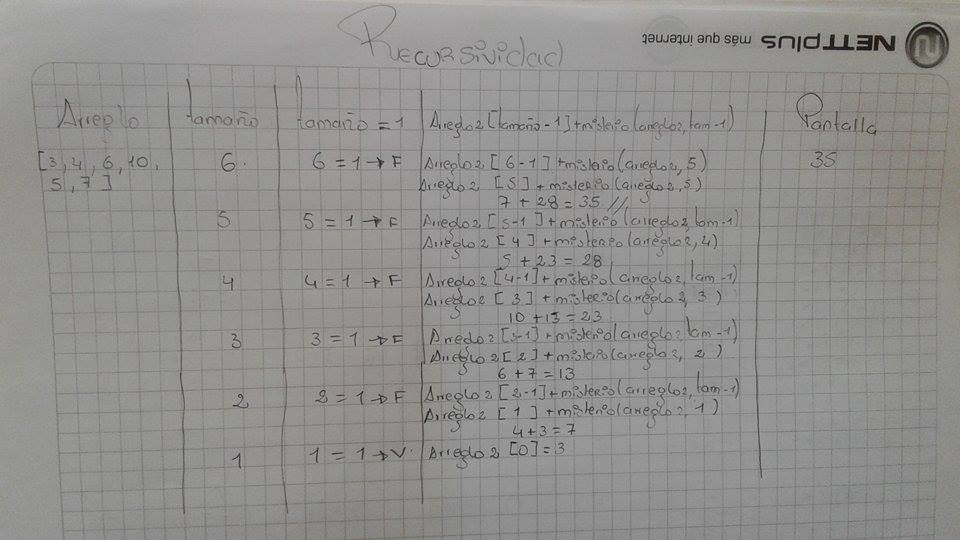 NETTplus más que internet
Recursividad
Arreglo tamaño tamaño = 1 Arreglo2 [tamaño - 1] + misterio(arreglo2, tam-1) Pantalla
[3, 4, 6, 10, 6. 6 = 1 → F Arreglo2 [6-1] + misterio(arreglo2, 5) 35
5, 7] Arreglo2 [5] + misterio(arreglo2, 5)
7 + 28 = 35 //
5 5 = 1 → F Arreglo2 [5-1] + misterio(arreglo2, tam-1)
Arreglo2 [4] + misterio(arreglo2, 4)
5 + 23 = 28
4 4 = 1 → F Arreglo2 [4-1] + misterio(arreglo2, tam-1)
Arreglo2 [3] + misterio(arreglo2, 3)
10 + 13 = 23
3 3 = 1 → F Arreglo2 [3-1] + misterio(arreglo2, tam-1)
Arreglo2 [2] + misterio(arreglo2, 2)
6 + 7 = 13
2 2 = 1 → F Arreglo2 [2-1] + misterio(arreglo2, tam-1)
Arreglo2 [1] + misterio(arreglo2, 1)
4 + 3 = 7
1 1 = 1 → V. Arreglo2 [0] = 3